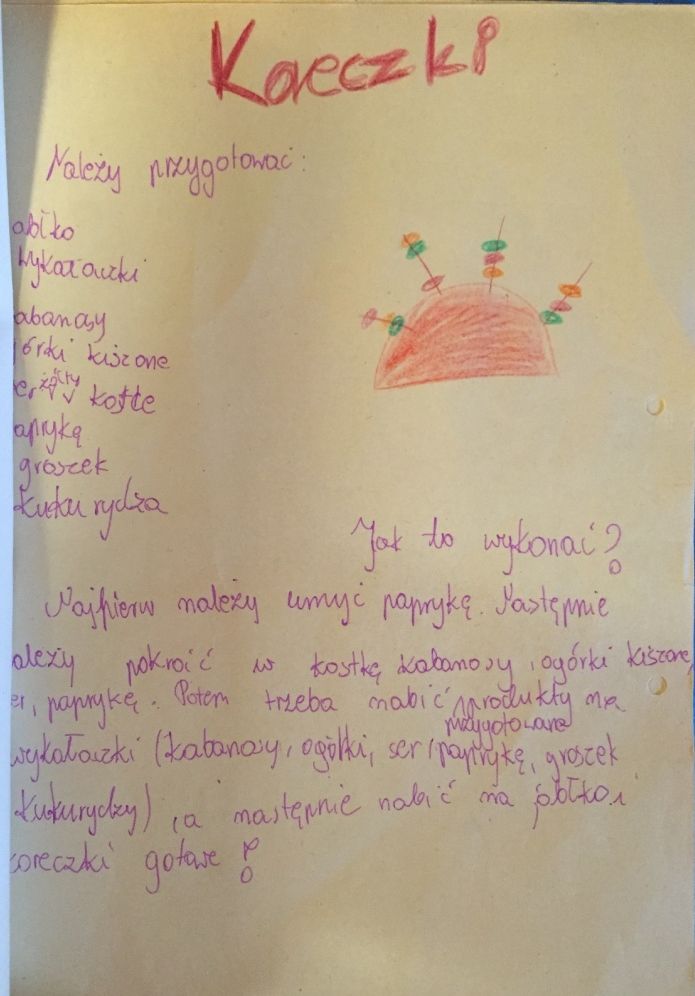 Koreczki
Należy przygotować:
abłko
wykałaczki
abanosy
órki kiszone
er żółty kostce
aprykę
groszek
kukurydza
Jak to wykonać?
Najpierw należy umyć paprykę. Następnie
ależy pokroić w kostkę kabanosy, ogórki kiszone,
er, paprykę. Potem trzeba nabić produkty na
przygotowane
wykałaczki (kabanosy, ogórki, ser, paprykę, groszek
kukurydzy), a następnie nabić na jabłko.
oreczki gotowe!